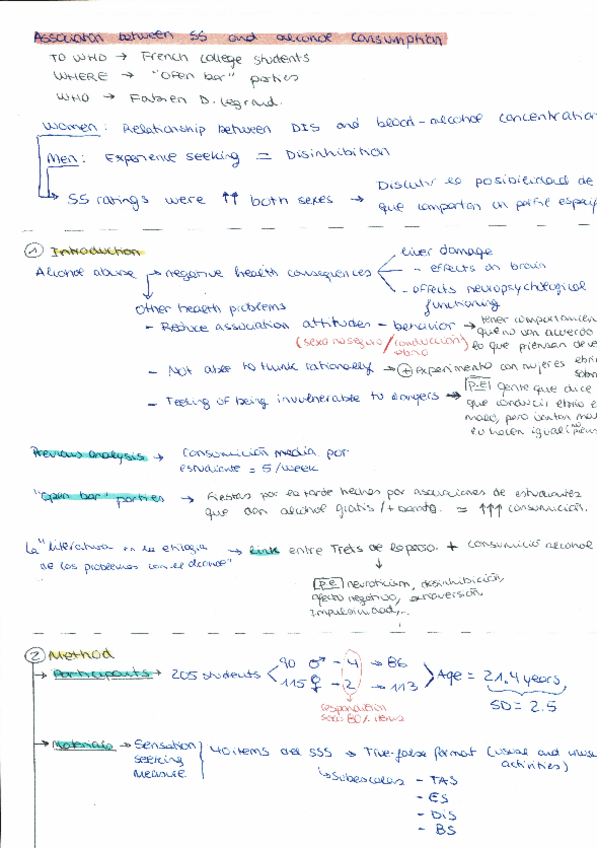 Association between SS and alcohol consumption
TO WHO → French college students
WHERE → "open bar" parties
WHO → Fabien D. Legrand.
Women: Relationship between DIS and blood-alcohol concentration
Men: Experience seeking = Disinhibition
→ SS ratings were ↑↑ both sexes → Discutir la posibilidad de
que compartan un perfil especif
① Introduction
Alcohol abuse → negative health consequences
liver damage
- effects on brain
- effects neuropsychological
functioning
Other health problems
- Reduce association attitudes - behavior → tener comportamien
que no van acuerdo
(sexo no seguro / conducción
ebrio)
lo que piensan
- Not able to think rationally → + Experimento con mujeres ebri
- Feeling of being invulnerable to dangers → P.E gente que dice
que conducir ebrio e
malo, pero
lo hacen igual
Previous analysis → consumición media por
estudiante = 5/week
"Open bar" parties → Fiestas por la tarde hechas por asociaciones de estudiantes
que dan alcohol gratis /+ barato. = ↑↑↑ consumición.
La "literatura en la etiologia
de los problemas con el alcohol"
→ link entre Trets de la perso. + consumició alcohol
P.e neuroticism, desinhibición,
afecto negativo, extraversión
Impulsividad,...
② Method
→ Participants → 205 students
90 ♂ - 4 → 86
115 ♀ - 2 → 113
Age = 21.4 years
SD = 2.5
80% items
→ Materials → Sensation
seeking
measure
40 items del SSS → True-false format (usual and unusu
activities)
↳ Subescalas - TAS
- ES
- DIS
- BS